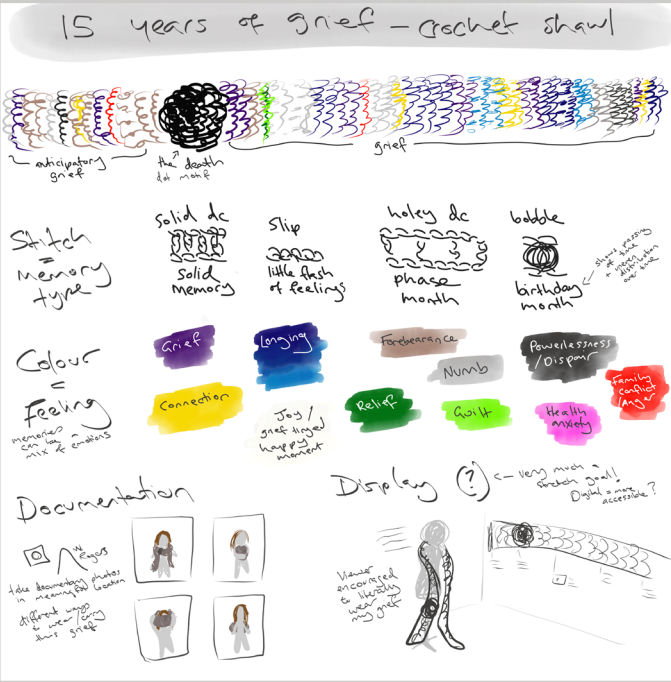 15 years of grief – crochet shawl
anticipatory
grief
the death
dot motif
grief
Stitch
=
memory
type
solid dc
solid
memory
slip
little flash
of feelings
holey dc
phase
month
bobble
birthday
month
shows passing
of time
+ uneven
distribution
over time
Colour
=
Feeling
memories
can be a
mix of emotions
Grief
Longing
Forebearance
Numb
Powerlessness
/Dispair
Family
conflict
/Anger
Connection
Joy/
grief tinged
happy
moment
Relief
Guilt
Health
anxiety
Documentation
take documentary photos
in meaningful location
different ways
to wear/carry
this grief
Display (?) <– very much a
stretch goal!
Digital = more
accessible?
Viewer
encouraged
to literally
wear
my grief